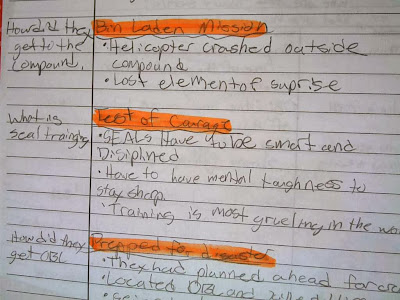 How did they
get to the
Compound.
Bin Laden Mission
• Helicopter crashed outside
compound
• Lost element of suprise
What is
seal training
Test of Courage
• SEALs Have to be smart and
Disiplined
• Have to have mental toughness to
stay sharp
• Training is most grueling in the
How did they
get OBL
Prepped for disaster
• They had planned ahead for
• Located OBL and